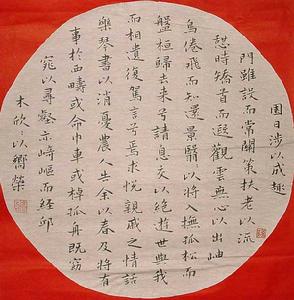 園日涉以成趣
門雖設而常關策扶老以流
憩時矯首而遐觀雲無心以出岫
鳥倦飛而知還景翳以將入撫孤松而
盤桓歸去来兮請息交以絕遊世與我
而相遺復駕言兮焉求悅親戚之情話
樂琴書以消憂農人告余以春及將有
事於西疇或命巾車或棹孤舟既窈
窕以尋壑亦崎嶇而經邱
木欣〻以嚮榮